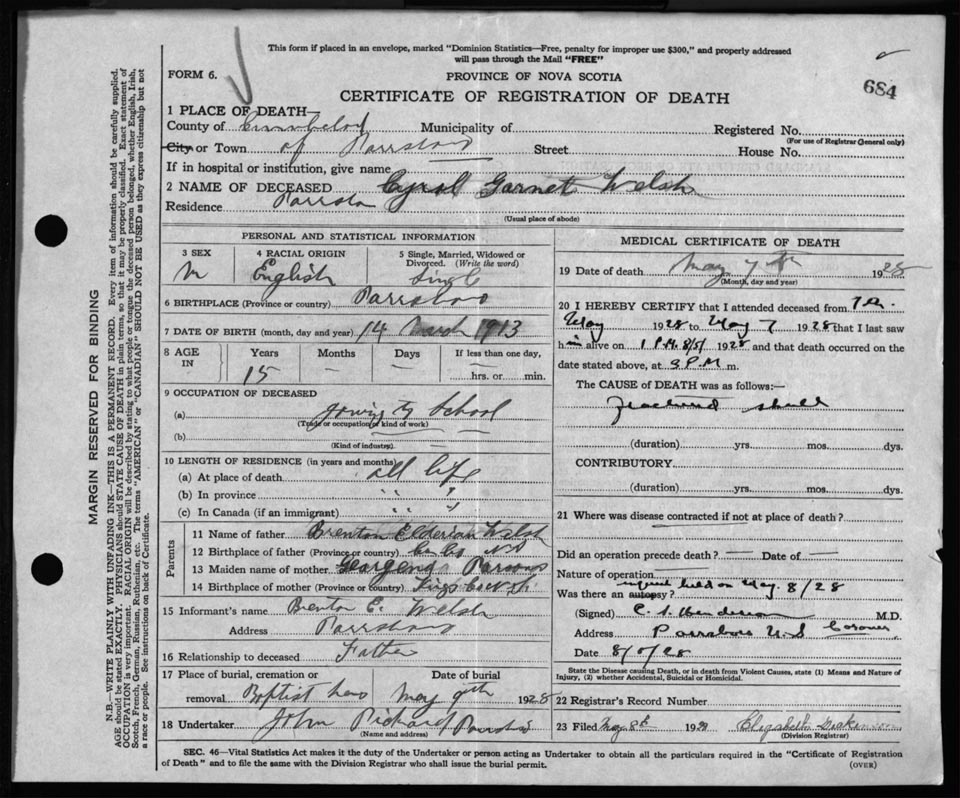 This form if placed in an envelope, marked "Dominion Statistics—Free, penalty for improper use $300," and properly addressed
will pass through the Mail "FREE"
FORM 6.
PROVINCE OF NOVA SCOTIA
684
CERTIFICATE OF REGISTRATION OF DEATH
1 PLACE OF DEATH—
County of Municipality of Registered No.
(For use of Registrar General only)
City or Town of Parrsboro Street House No.
If in hospital or institution, give name
2 NAME OF DECEASED Cyril Garnet Welsh
Residence
(Usual place of abode)
PERSONAL AND STATISTICAL INFORMATION
3 SEX 4 RACIAL ORIGIN 5 Single, Married, Widowed or
Divorced. (Write the word)
M English Single
6 BIRTHPLACE (Province or country) Parrsboro
7 DATE OF BIRTH (month, day and year) 14 March 1913
8 AGE IN Years Months Days If less than one day,
15 — — hrs. or min.
9 OCCUPATION OF DECEASED
(a) going to School
(Trade or occupation or kind of work)
(b)
(Kind of industry)
10 LENGTH OF RESIDENCE (in years and months)
(a) At place of death all life
(b) In province " "
(c) In Canada (if an immigrant) " "
Parents
11 Name of father Brenton Welsh
12 Birthplace of father (Province or country)
13 Maiden name of mother Parsons
14 Birthplace of mother (Province or country) Kings Co N.S.
15 Informant's name Brenton E. Welsh
Address Parrsboro
16 Relationship to deceased Father
17 Place of burial, cremation or Date of burial
removal Baptist May 9th 1928
18 Undertaker John Rickard Parrsboro
(Name and address)
MEDICAL CERTIFICATE OF DEATH
19 Date of death May 7th 1928
(Month, day and year)
20 I HEREBY CERTIFY that I attended deceased from 7th
May 1928 to May 7 1928 that I last saw
him alive on 1 P.M. 8/5/ 1928 and that death occurred on the
date stated above, at 3 P.M m.
The CAUSE OF DEATH was as follows:—
Fractured skull
(duration) yrs. mos. dys.
CONTRIBUTORY
(duration) yrs. mos. dys.
21 Where was disease contracted if not at place of death?
Did an operation precede death? — Date of —
Nature of operation
held on May 8/28
Was there an autopsy?
(Signed) Henderson M.D.
Address Parrsboro N.S Coroner
Date 8/5/28
State the Disease Causing Death, or in death from Violent Causes, state (1) Means and Nature of
Injury, (2) whether Accidental, Suicidal or Homicidal.
22 Registrar's Record Number
23 Filed May 8th 1928 Elizabeth
(Division Registrar)
SEC. 46—Vital Statistics Act makes it the duty of the Undertaker or person acting as Undertaker to obtain all the particulars required in the "Certificate of Registration
of Death" and to file the same with the Division Registrar who shall issue the burial permit.
(OVER)
MARGIN RESERVED FOR BINDING
N.B.—WRITE PLAINLY WITH UNFADING INK—THIS IS A PERMANENT RECORD. Every item of information should be carefully supplied.
AGE should be stated EXACTLY. PHYSICIANS should STATE CAUSE OF DEATH in plain terms, so that it may be properly classified. Exact statement of
OCCUPATION is very important. RACIAL ORIGIN will be described by stating to what people or tongue the deceased person belonged, whether English, Irish,
Scotch, French, German, Russian, Ruthenian, etc. The terms "AMERICAN" or "CANADIAN" SHOULD NOT BE USED as they express citizenship but not
a race or people. See instructions on back of Certificate.